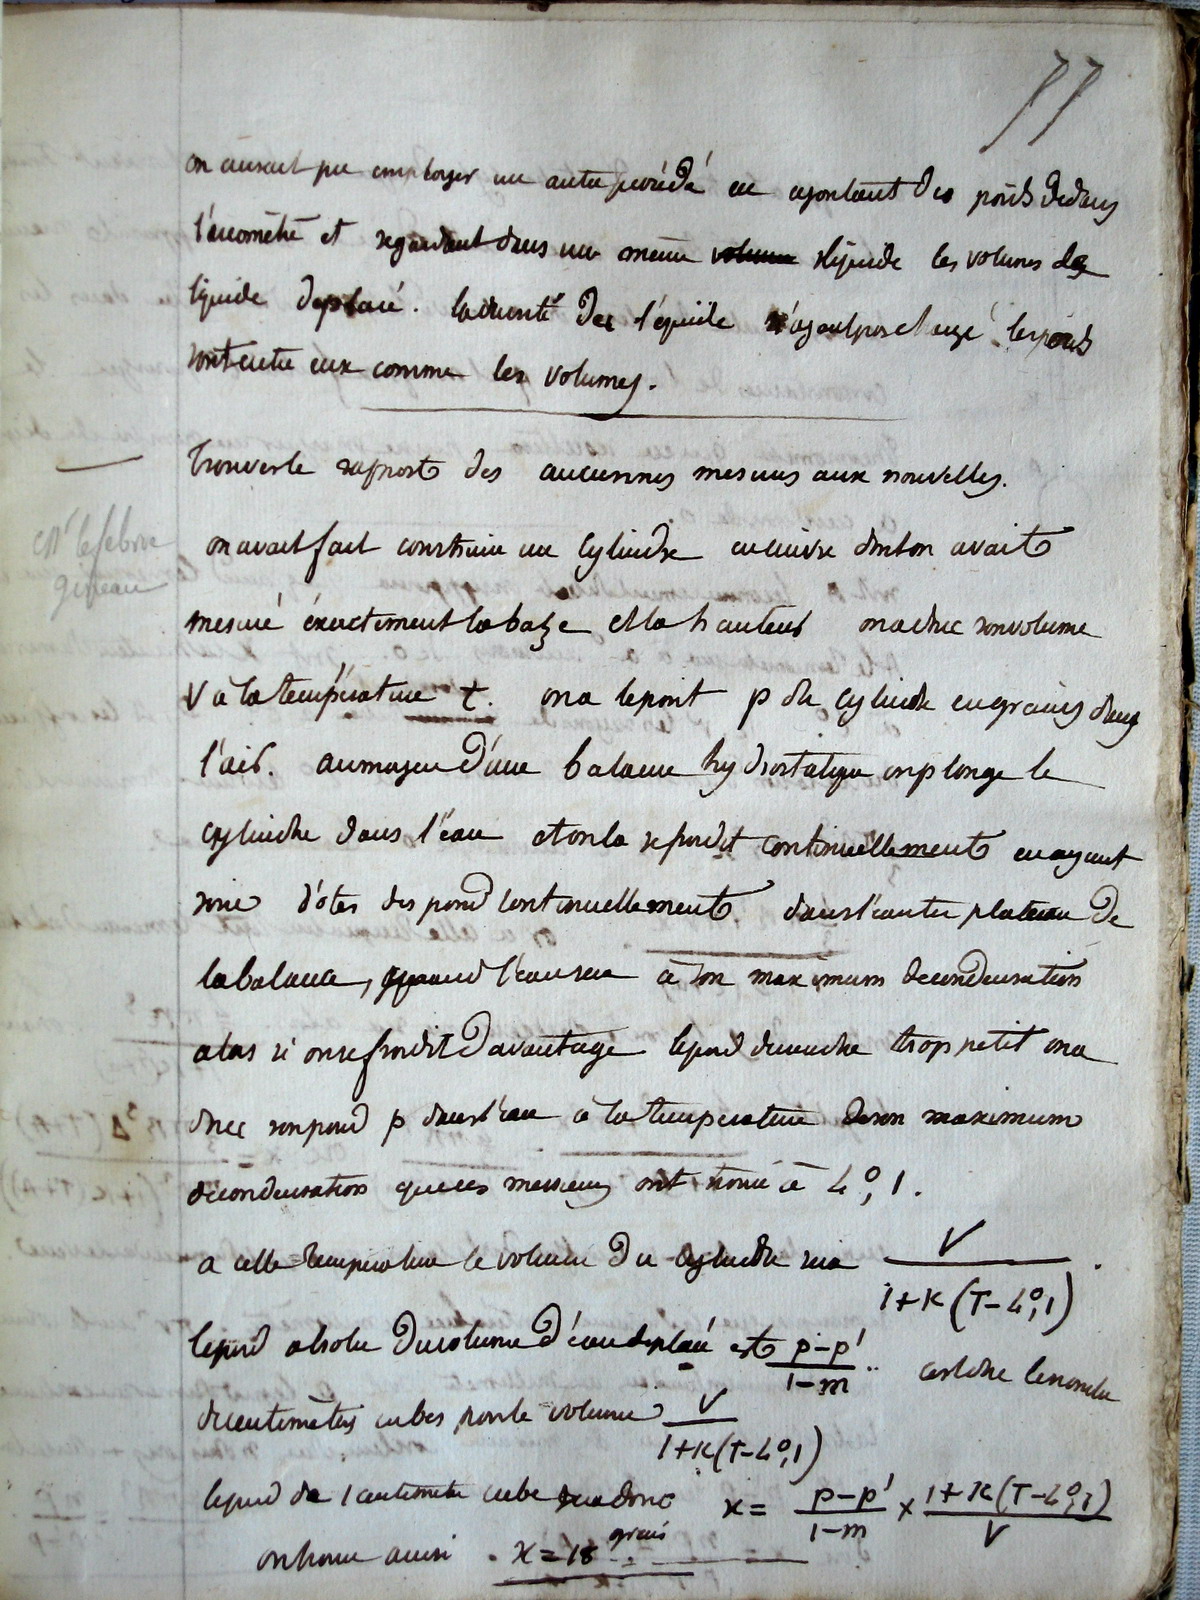 77
on aurait pu employer un autre procédé en ajoutant des poids dedans
l'aréomètre et regardant dans un même volume liquide les volumes de
liquide déplacé. la densité du liquide n'ayant pas changé les poids
sont entre eux comme les volumes.
trouver le rapport des anciennes mesures aux nouvelles.
Mr lefebvre
gineau
on avait fait construire un cylindre en cuivre dont on avait
mesuré éxactement la baze et la hauteur on a donc son volume
V à la température t. on a le poit p du cylindre en grains dans
l'air. au moyen d'une balance hydrostatique on plonge le
cylindre dans l'eau et on la refroidit continuellement en ayant
soin d'oter des poid continuellement dans l'autre plateau de
la balance, quand l'eau sera à son maximum de condensation
alors si on refroidit d'avantage le poid deviendra trop petit on a
donc son poid p dans l'eau à la température de son maximum
de condensation que ces messieurs ont trouvé à 4°,1.
a cette température le volume du cylindre sera V / 1+K(T-4°,1) .
le poid absolu du volume d'eau déplacé est p-p' / 1-m .. c'est à dire le nombre
de centimètres cubes pour le volume V / 1+K(T-4°,1)
le poid de 1 centimetre cube sera donc x = p-p' / 1-m × 1+K(T-4°,1) / V
on trouve ainsi . x = 18 grains